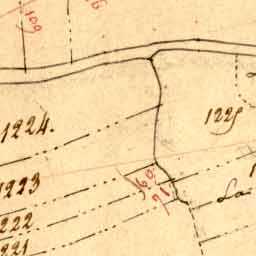 109
1224.
1225
1223
1222
1221
69
71
La